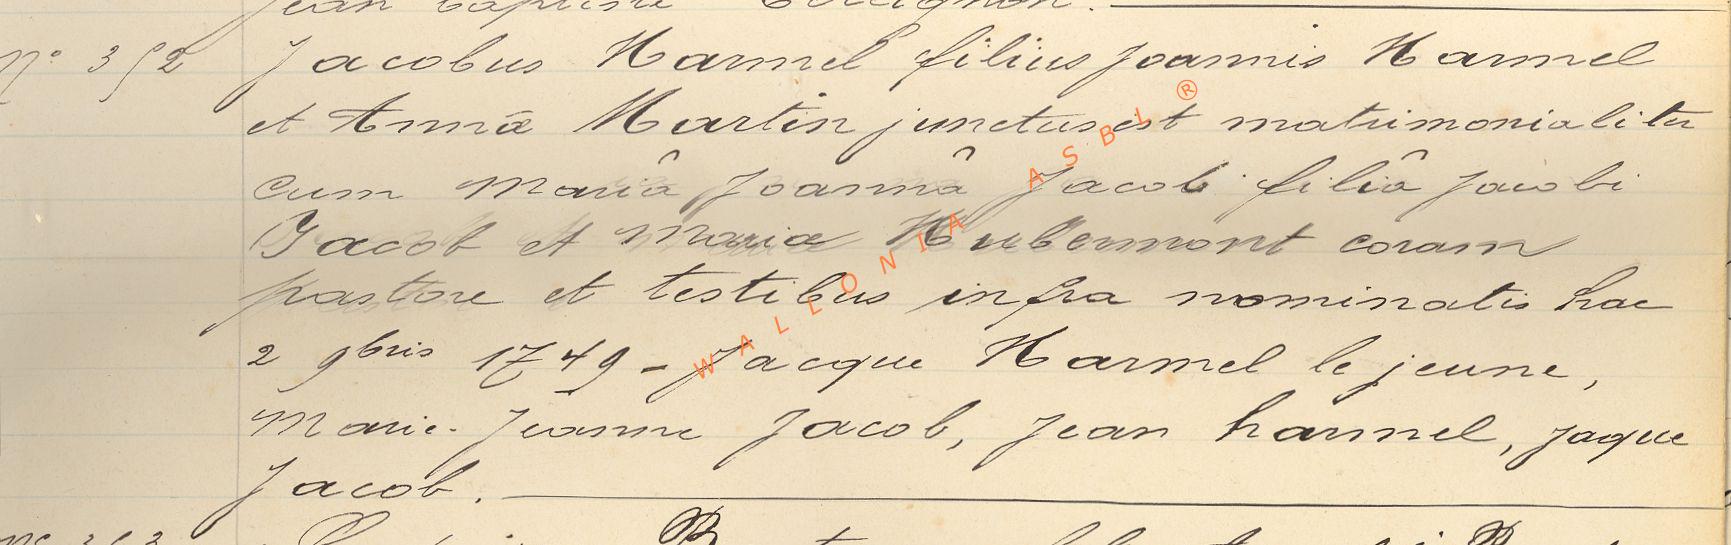 Jean Baptiste
N° 352 Jacobus Harmel filius Joannis Harmel
et Annæ Martin junctus est matrimonialiter
cum Mariâ Joannâ Jacob filiâ Jacobi
Jacob et Maria Hubermont coram
pastore et testibus infra nominatis hac
2 9bris 1749 - Jacque Harmel le jeune,
Marie-Jeanne Jacob, Jean harmel, Jaque
Jacob.
WALLONIA ASBL ®